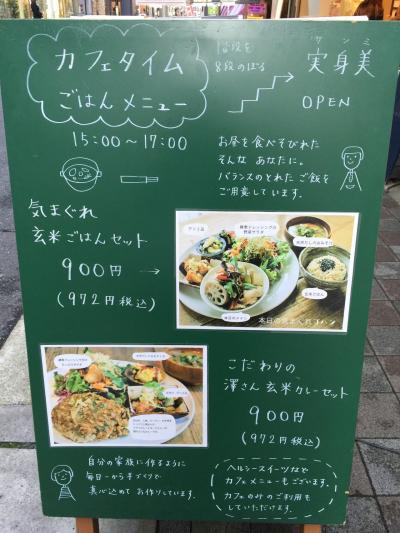 カフェタイム
ごはんメニュー
15:00〜17:00
階段を
8段のぼる
サンミ
実身美
OPEN
お昼を食べそびれた
そんな あなたに。
バランスのとれた ご飯を
ご用意しています。
気まぐれ
玄米ごはんセット
900円 →
(972円税込)
玄米ごはん
本日のメイン
こだわりの
澤さん 玄米カレーセット
900円
(972円税込)
自分の家族に作るように
毎日一から手づくりで
真心込めて お作りしています。
ヘルシースイーツなど
カフェメニューもございます。
カフェのみのご利用も
していただけます。